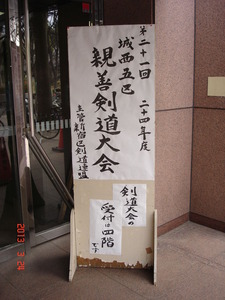 第二十一回
二十四年度
城西五区
親善剣道大会
主管新宿区剣道連盟
剣道大会の
受付は四階
です
2013 3 24